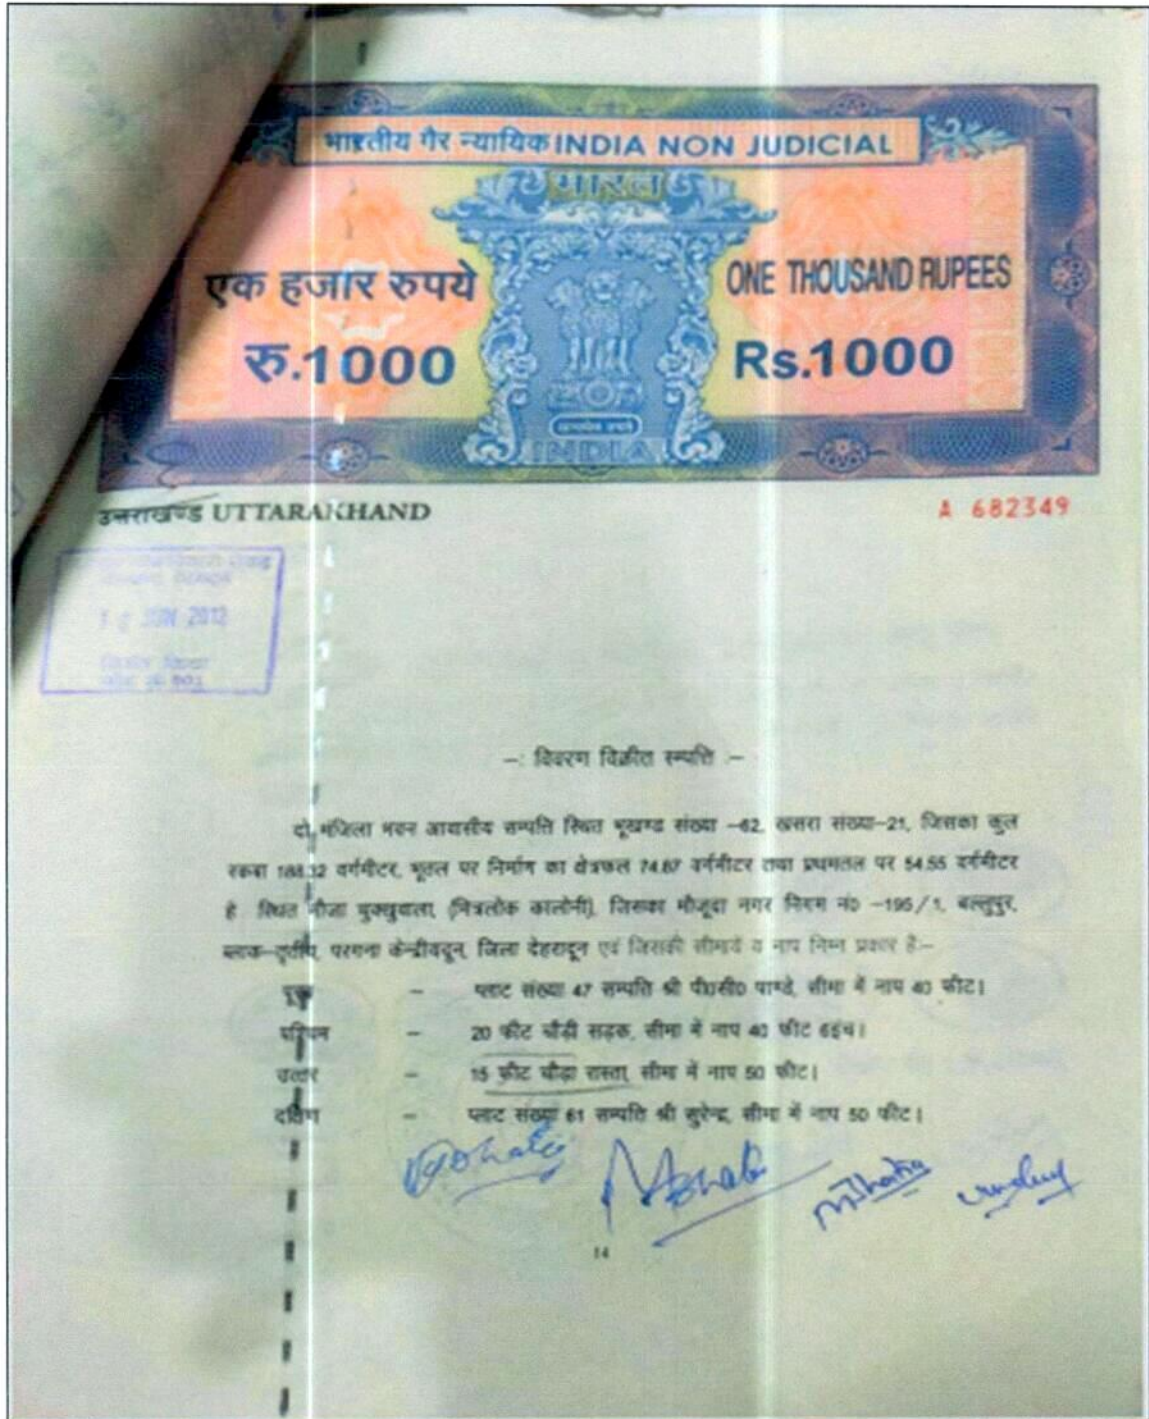 भारतीय गैर न्यायिक INDIA NON JUDICIAL
भारत
एक हजार रुपये ONE THOUSAND RUPEES
रु.1000 Rs.1000
सत्यमेव जयते
INDIA
उत्तराखण्ड UTTARAKHAND A 682349
JUN 2012
–: विवरण विक्रीत सम्पत्ति :–
दो मंजिला भवन आवासीय सम्पत्ति स्थित भूखण्ड संख्या –62, खसरा संख्या–21, जिसका कुल
रकबा वर्गमीटर, भूतल पर निर्माण का क्षेत्रफल 74.87 वर्गमीटर तथा प्रथमतल पर 54.55 वर्गमीटर
है स्थित मौजा (मित्रलोक कालोनी), जिसका मौजूदा नगर निगम नं0 –195/1, बल्लुपुर,
ब्लाक–तृतीय, परगना केन्द्रीयदून, जिला देहरादून एवं जिसकी सीमायें व नाप निम्न प्रकार है:–
पूरब – प्लाट संख्या 47 सम्पति श्री पी0सी0 पाण्डे, सीमा में नाप 40 फीट।
पश्चिम – 20 फीट चौड़ी सड़क, सीमा में नाप 40 फीट 6इंच।
उत्तर – 15 फीट चौड़ा रास्ता, सीमा में नाप 50 फीट।
दक्षिण – प्लाट संख्या 61 सम्पति श्री सुरेन्द्र, सीमा में नाप 50 फीट।
14